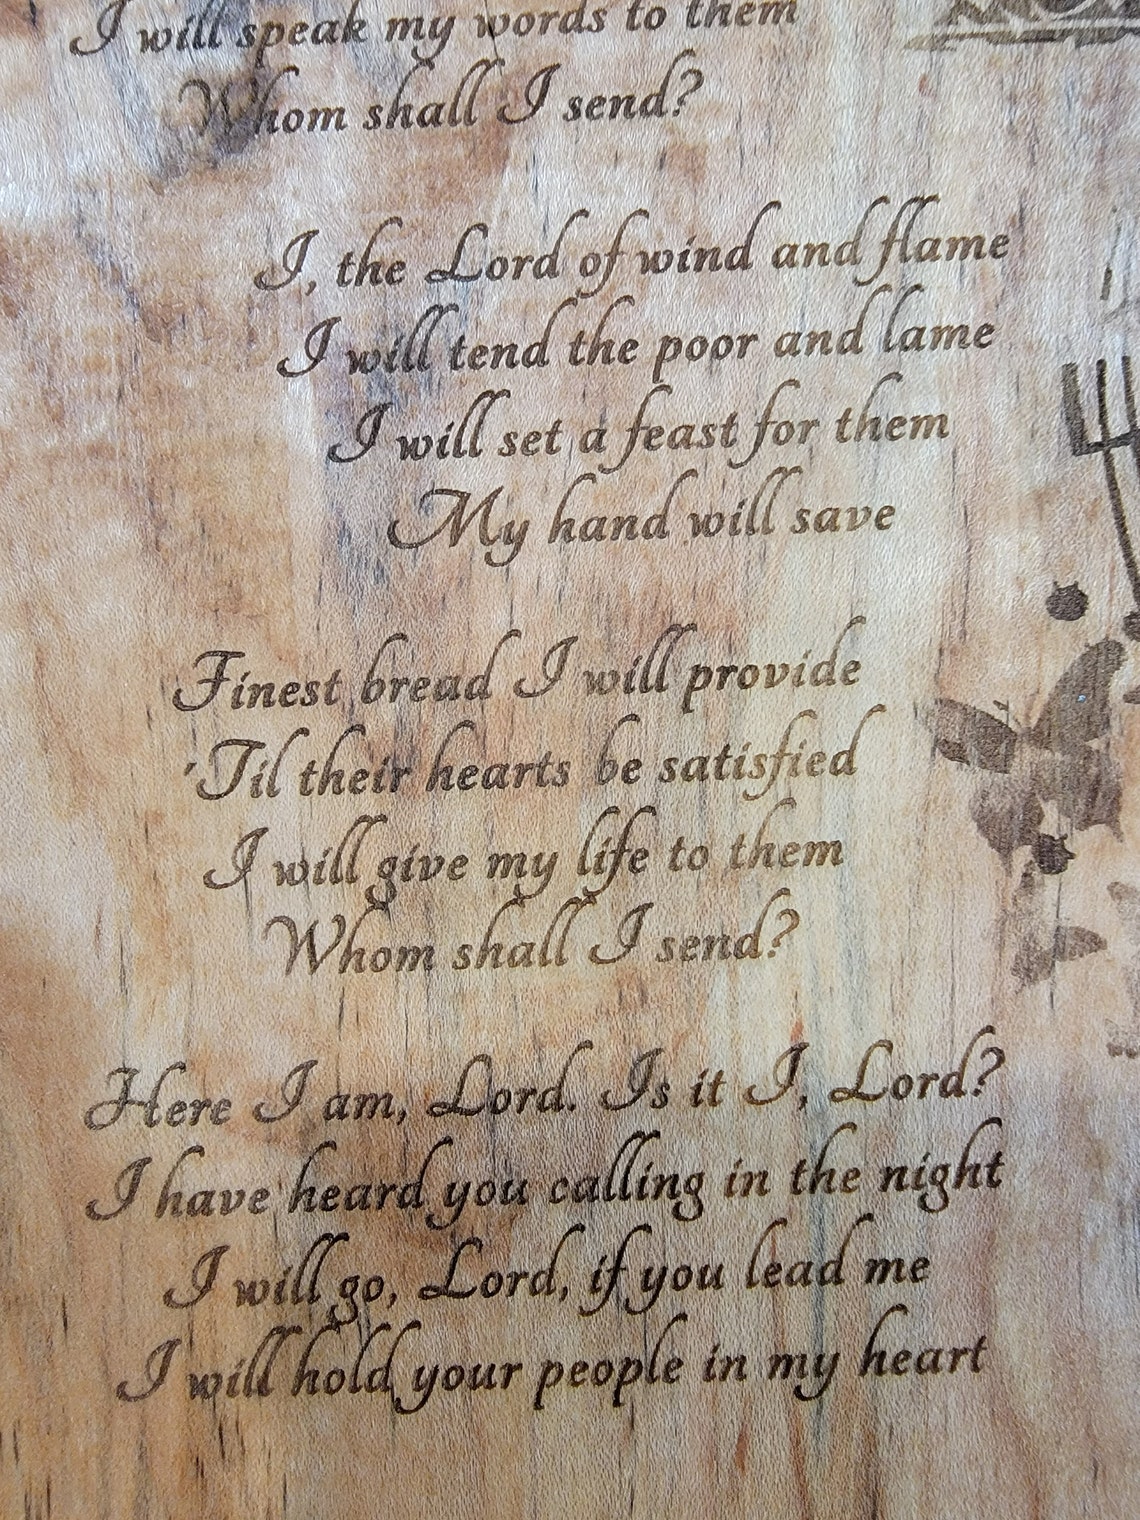 I will speak my words to them
Whom shall I send?
I, the Lord of wind and flame
I will tend the poor and lame
I will set a feast for them
My hand will save
Finest bread I will provide
'Til their hearts be satisfied
I will give my life to them
Whom shall I send?
Here I am, Lord. Is it I, Lord?
I have heard you calling in the night
I will go, Lord, if you lead me
I will hold your people in my heart